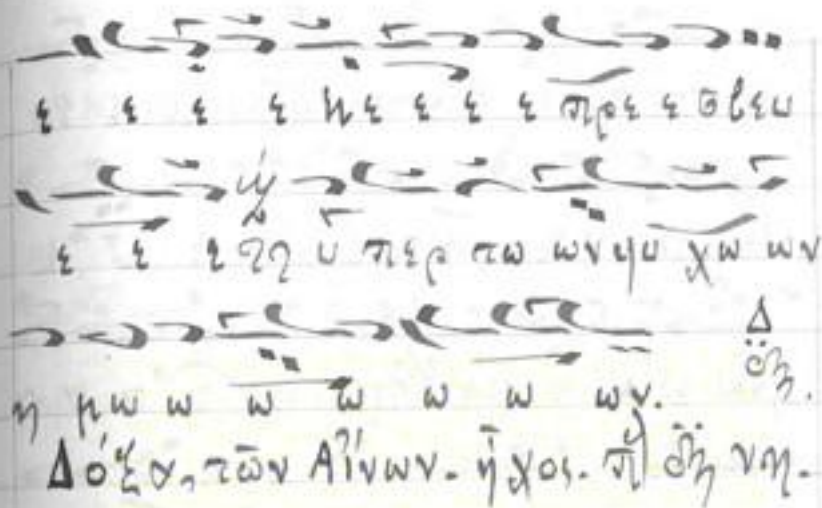 ε ε ε ε με ε ε ε πρε ε σβευ
ε ε ε τη υ περ τω ων ψυ χω ων
Δ
η μω ω ω ω ω ω ων.
Δόξα, τῶν Αἴνων. ἦχος.